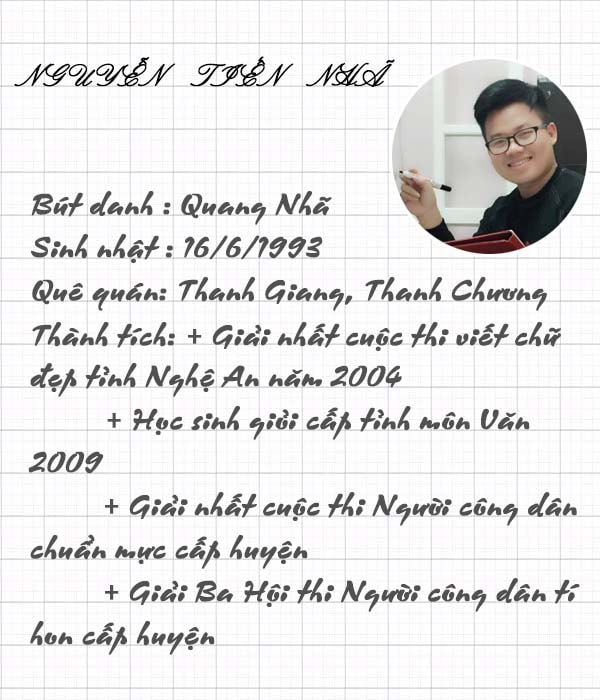 NGUYỄN TIẾN NHÃ
Bút danh : Quang Nhã
Sinh nhật : 16/6/1993
Quê quán: Thanh Giang, Thanh Chương
Thành tích: + Giải nhất cuộc thi viết chữ
đẹp tỉnh Nghệ An năm 2004
+ Học sinh giỏi cấp tỉnh môn Văn
2009
+ Giải nhất cuộc thi Người công dân
chuẩn mực cấp huyện
+ Giải Ba Hội thi Người công dân tí
hon cấp huyện